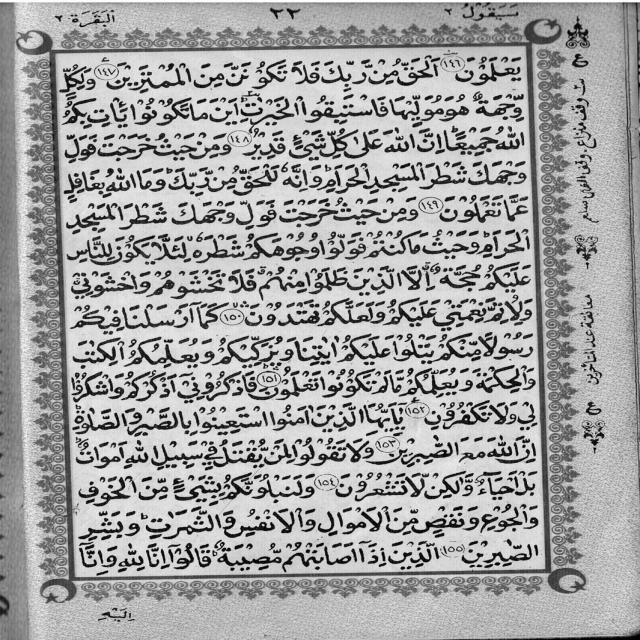 سيقول ٢
٢٢
البقرة ٢
يَعْلَمُوْنَ ﴿١٤٦﴾ اَلْحَقُّ مِنْ رَّبِّكَ فَلَا تَكُوْنَنَّ مِنَ الْمُمْتَرِيْنَ ﴿١٤٧﴾ وَلِكُلٍّ
وِّجْهَةٌ هُوَ مُوَلِّيْهَا فَاسْتَبِقُوا الْخَيْرٰتِ اَيْنَ مَا تَكُوْنُوْا يَاْتِ بِكُمُ
اللّٰهُ جَمِيْعًا اِنَّ اللّٰهَ عَلٰى كُلِّ شَيْءٍ قَدِيْرٌ ﴿١٤٨﴾ وَمِنْ حَيْثُ خَرَجْتَ فَوَلِّ
وَجْهَكَ شَطْرَ الْمَسْجِدِ الْحَرَامِ وَاِنَّهٗ لَلْحَقُّ مِنْ رَّبِّكَ وَمَا اللّٰهُ بِغَافِلٍ
عَمَّا تَعْمَلُوْنَ ﴿١٤٩﴾ وَمِنْ حَيْثُ خَرَجْتَ فَوَلِّ وَجْهَكَ شَطْرَ الْمَسْجِدِ
الْحَرَامِ وَحَيْثُ مَا كُنْتُمْ فَوَلُّوْا وُجُوْهَكُمْ شَطْرَهٗ لِئَلَّا يَكُوْنَ لِلنَّاسِ
عَلَيْكُمْ حُجَّةٌ اِلَّا الَّذِيْنَ ظَلَمُوْا مِنْهُمْ فَلَا تَخْشَوْهُمْ وَاخْشَوْنِيْ
وَلِاُتِمَّ نِعْمَتِيْ عَلَيْكُمْ وَلَعَلَّكُمْ تَهْتَدُوْنَ ﴿١٥٠﴾ كَمَا اَرْسَلْنَا فِيْكُمْ
رَسُوْلًا مِّنْكُمْ يَتْلُوْا عَلَيْكُمْ اٰيٰتِنَا وَيُزَكِّيْكُمْ وَيُعَلِّمُكُمُ الْكِتٰبَ
وَالْحِكْمَةَ وَيُعَلِّمُكُمْ مَّا لَمْ تَكُوْنُوْا تَعْلَمُوْنَ ﴿١٥١﴾ فَاذْكُرُوْنِيْ اَذْكُرْكُمْ وَاشْكُرُوْا
لِيْ وَلَا تَكْفُرُوْنِ ﴿١٥٢﴾ يٰاَيُّهَا الَّذِيْنَ اٰمَنُوا اسْتَعِيْنُوْا بِالصَّبْرِ وَالصَّلٰوةِ
اِنَّ اللّٰهَ مَعَ الصّٰبِرِيْنَ ﴿١٥٣﴾ وَلَا تَقُوْلُوْا لِمَنْ يُّقْتَلُ فِيْ سَبِيْلِ اللّٰهِ اَمْوَاتٌ
بَلْ اَحْيَاءٌ وَّلٰكِنْ لَّا تَشْعُرُوْنَ ﴿١٥٤﴾ وَلَنَبْلُوَنَّكُمْ بِشَيْءٍ مِّنَ الْخَوْفِ
وَالْجُوْعِ وَنَقْصٍ مِّنَ الْاَمْوَالِ وَالْاَنْفُسِ وَالثَّمَرٰتِ وَبَشِّرِ
الصّٰبِرِيْنَ ﴿١٥٥﴾ الَّذِيْنَ اِذَا اَصَابَتْهُمْ مُّصِيْبَةٌ قَالُوْا اِنَّا لِلّٰهِ وَاِنَّا
اِلَيْهِ
معانقة عند المتأخرين